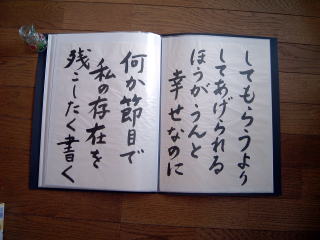 してもらうより
してあげられる
ほうがうんと
幸せなのに
何か節目で
私の存在を
残こしたく書く